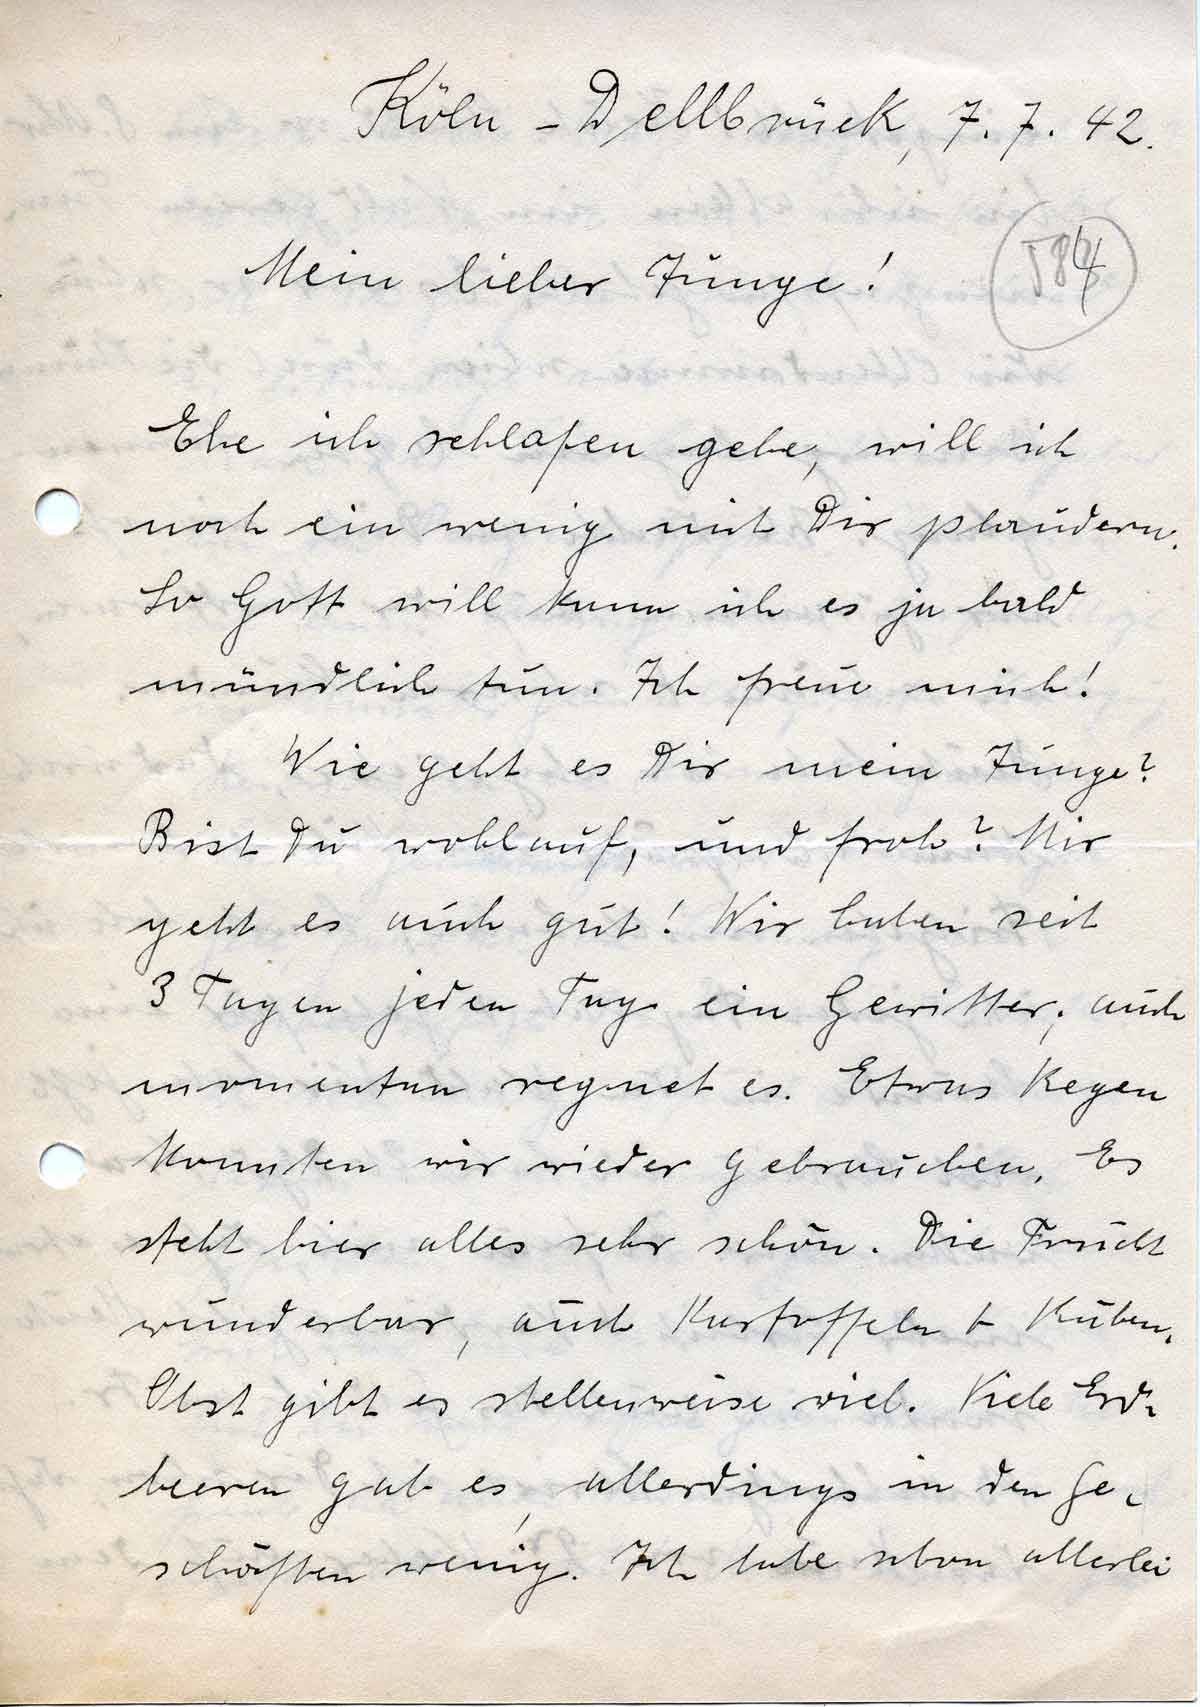 Köln - Dellbrück, 7. 7. 42.
584
Mein lieber Junge!
Ehe ich schlafen gehe, will ich
noch ein wenig mit Dir plaudern.
So Gott will kann ich es ja bald
mündlich tun. Ich freue mich!
Wie geht es Dir mein Junge?
Bist Du wohlauf, und froh? Mir
geht es auch gut! Wir haben seit
3 Tagen jeden Tag ein Gewitter, auch
momentan regnet es. Etwas Regen
konnten wir wieder gebrauchen. Es
steht hier alles sehr schön. Die Frucht
wunderbar, auch Kartoffeln + Rüben.
Obst gibt es stellenweise viel. Viele Erd-
beeren gab es, allerdings in den Ge-
schäften wenig. Ich habe schon allerlei